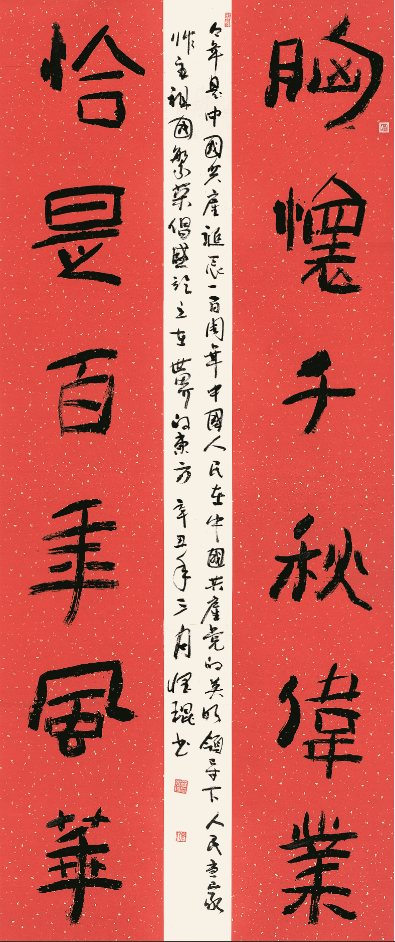 胸懷千秋偉業
恰是百年風華
今年是中國共產誕辰一百周年中國人民在中國共產党的英明領导下人民當家
作主祖國繁荣倡盛屹立在世界的東方辛丑年三月
琨书